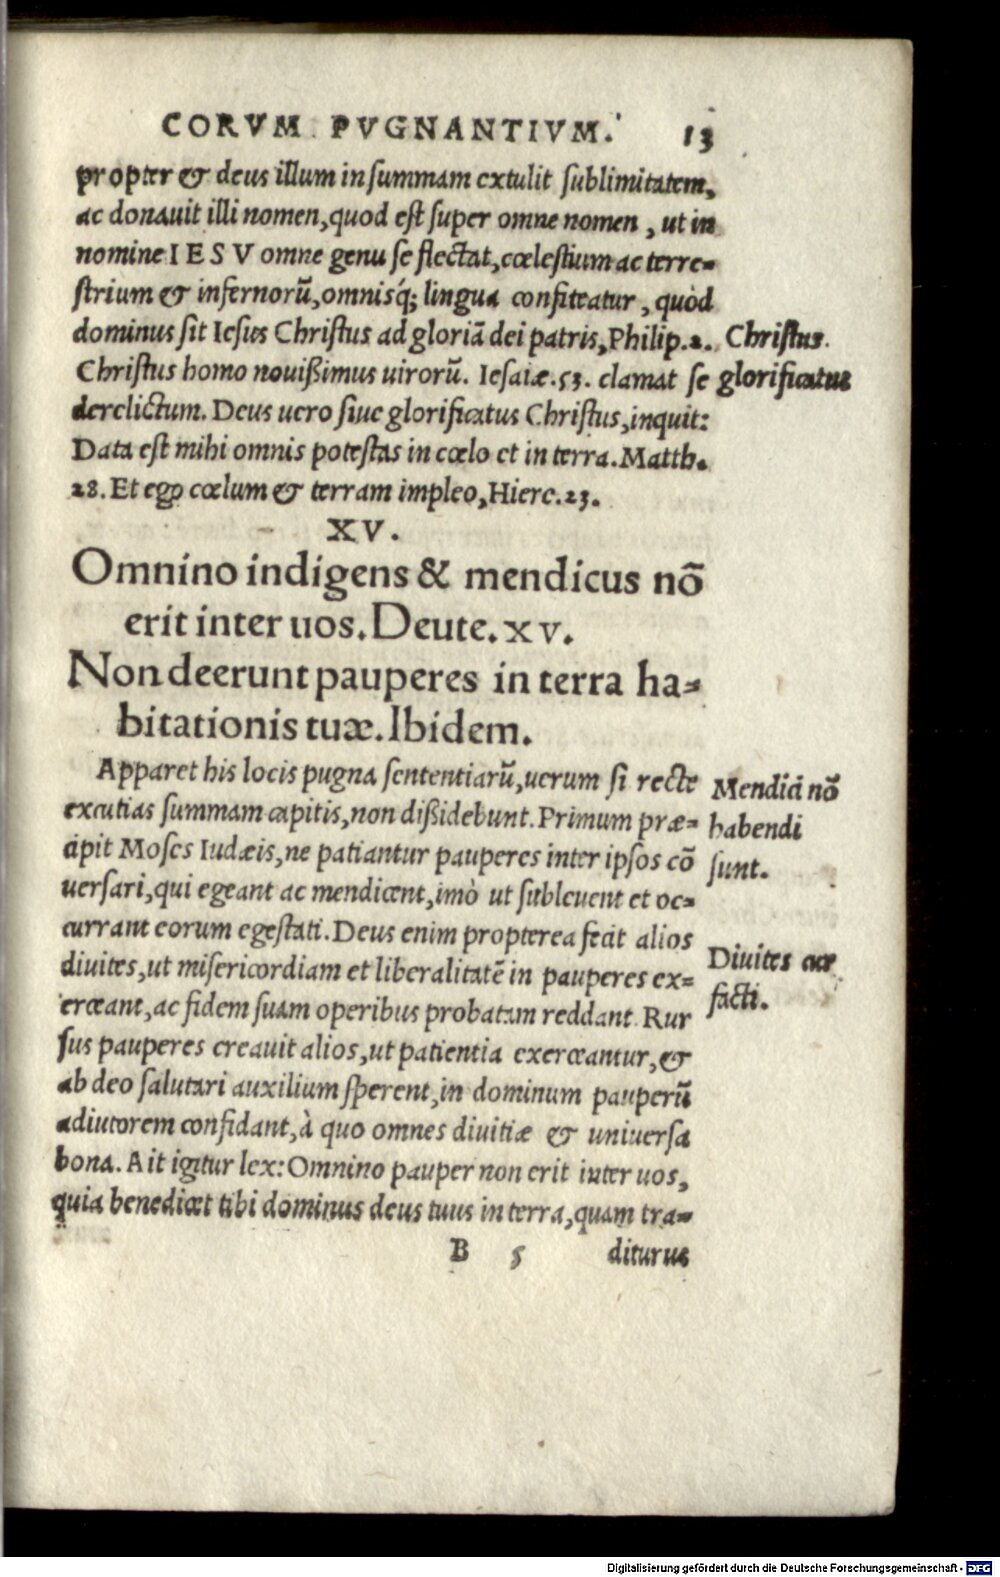 CORVM PVGNANTIVM. 13
propter & deus illum in summam extulit sublimitatem,
ac donauit illi nomen, quod est super omne nomen, ut in
nomine IESV omne genu se flectat, cœlestium ac terre-
strium & infernorū, omnisq́; lingua confiteatur, quòd
dominus sit Iesus Christus ad gloriā dei patris, Philip.2.
Christus
Christus homo nouißimus uirorū. Iesaiæ.53. clamat se
glorificatus
derelictum. Deus uero siue glorificatus Christus, inquit:
Data est mihi omnis potestas in cœlo et in terra. Matth.
28. Et ego cœlum & terram impleo, Hiere.23.
XV.
Omnino indigens & mendicus nō
erit inter uos. Deute. xv.
Non deerunt pauperes in terra ha-
bitationis tuæ. Ibidem.
Apparet his locis pugna sententiarū, uerum si recte
excutias summam capitis, non dißidebunt. Primum præ-
cipit Moses Iudæis, ne patiantur pauperes inter ipsos cō
uersari, qui egeant ac mendicent, imò ut subleuent et oc-
currant eorum egestati. Deus enim propterea fecit alios
diuites, ut misericordiam et liberalitatē in pauperes ex-
erceant, ac fidem suam operibus probatam reddant. Rur
sus pauperes creauit alios, ut patientia exerceantur, &
ab deo salutari auxilium sperent, in dominum pauperū
adiutorem confidant, à quo omnes diuitiæ & uniuersa
bona. Ait igitur lex: Omnino pauper non erit inter uos,
quia benedicet tibi dominus deus tuus in terra, quam tra-
Mendici nō
habendi
sunt.
Diuites cur
facti.
B 5 diturus
Digitalisierung gefördert durch die Deutsche Forschungsgemeinschaft - DFG